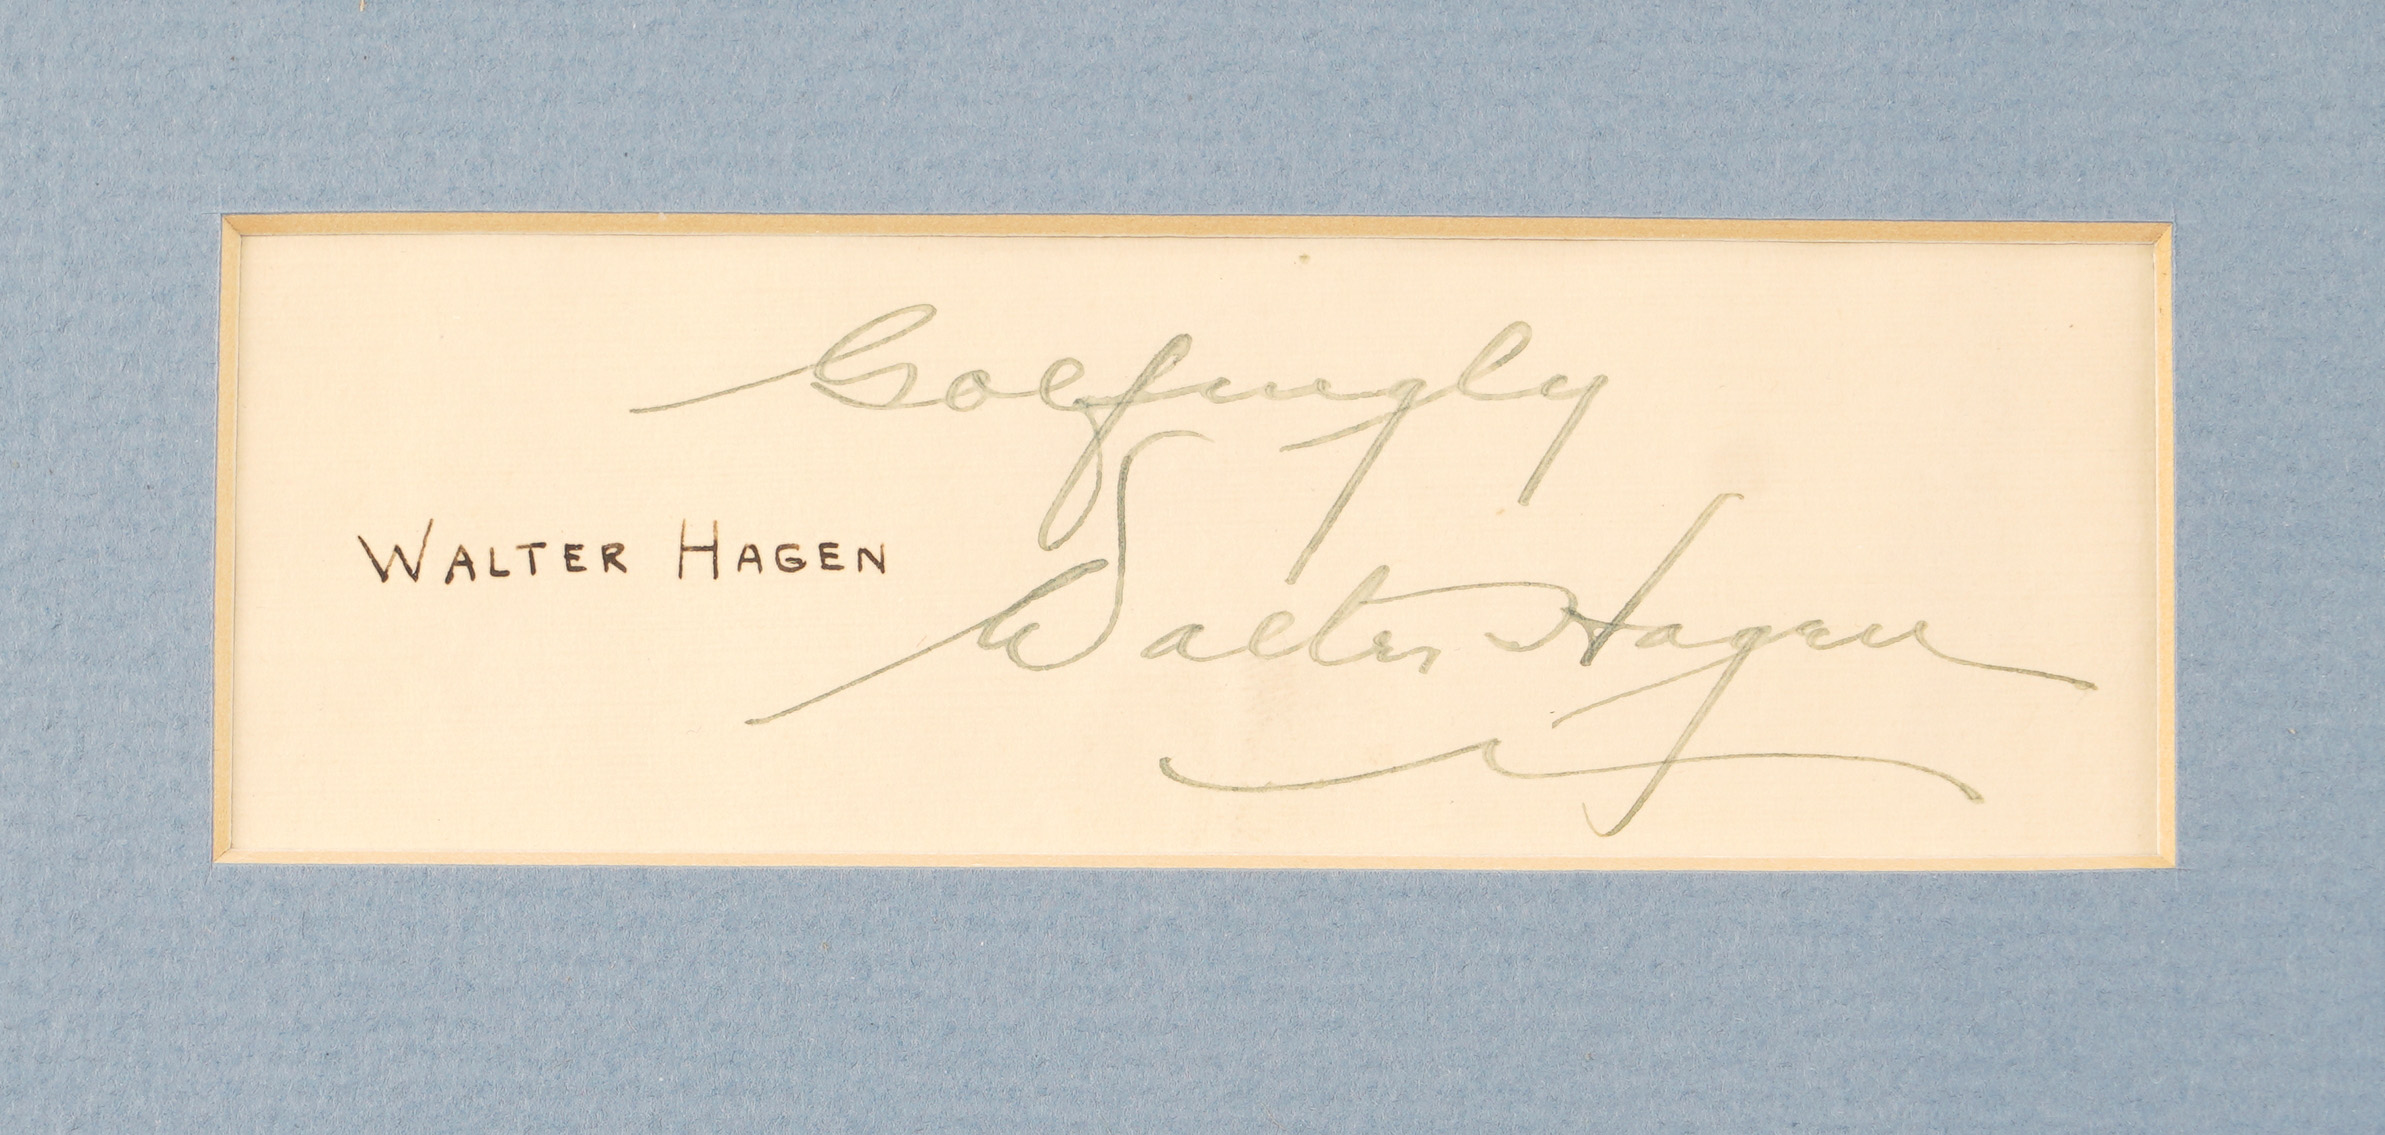 Golfingly
WALTER HAGEN
Walter Hagen